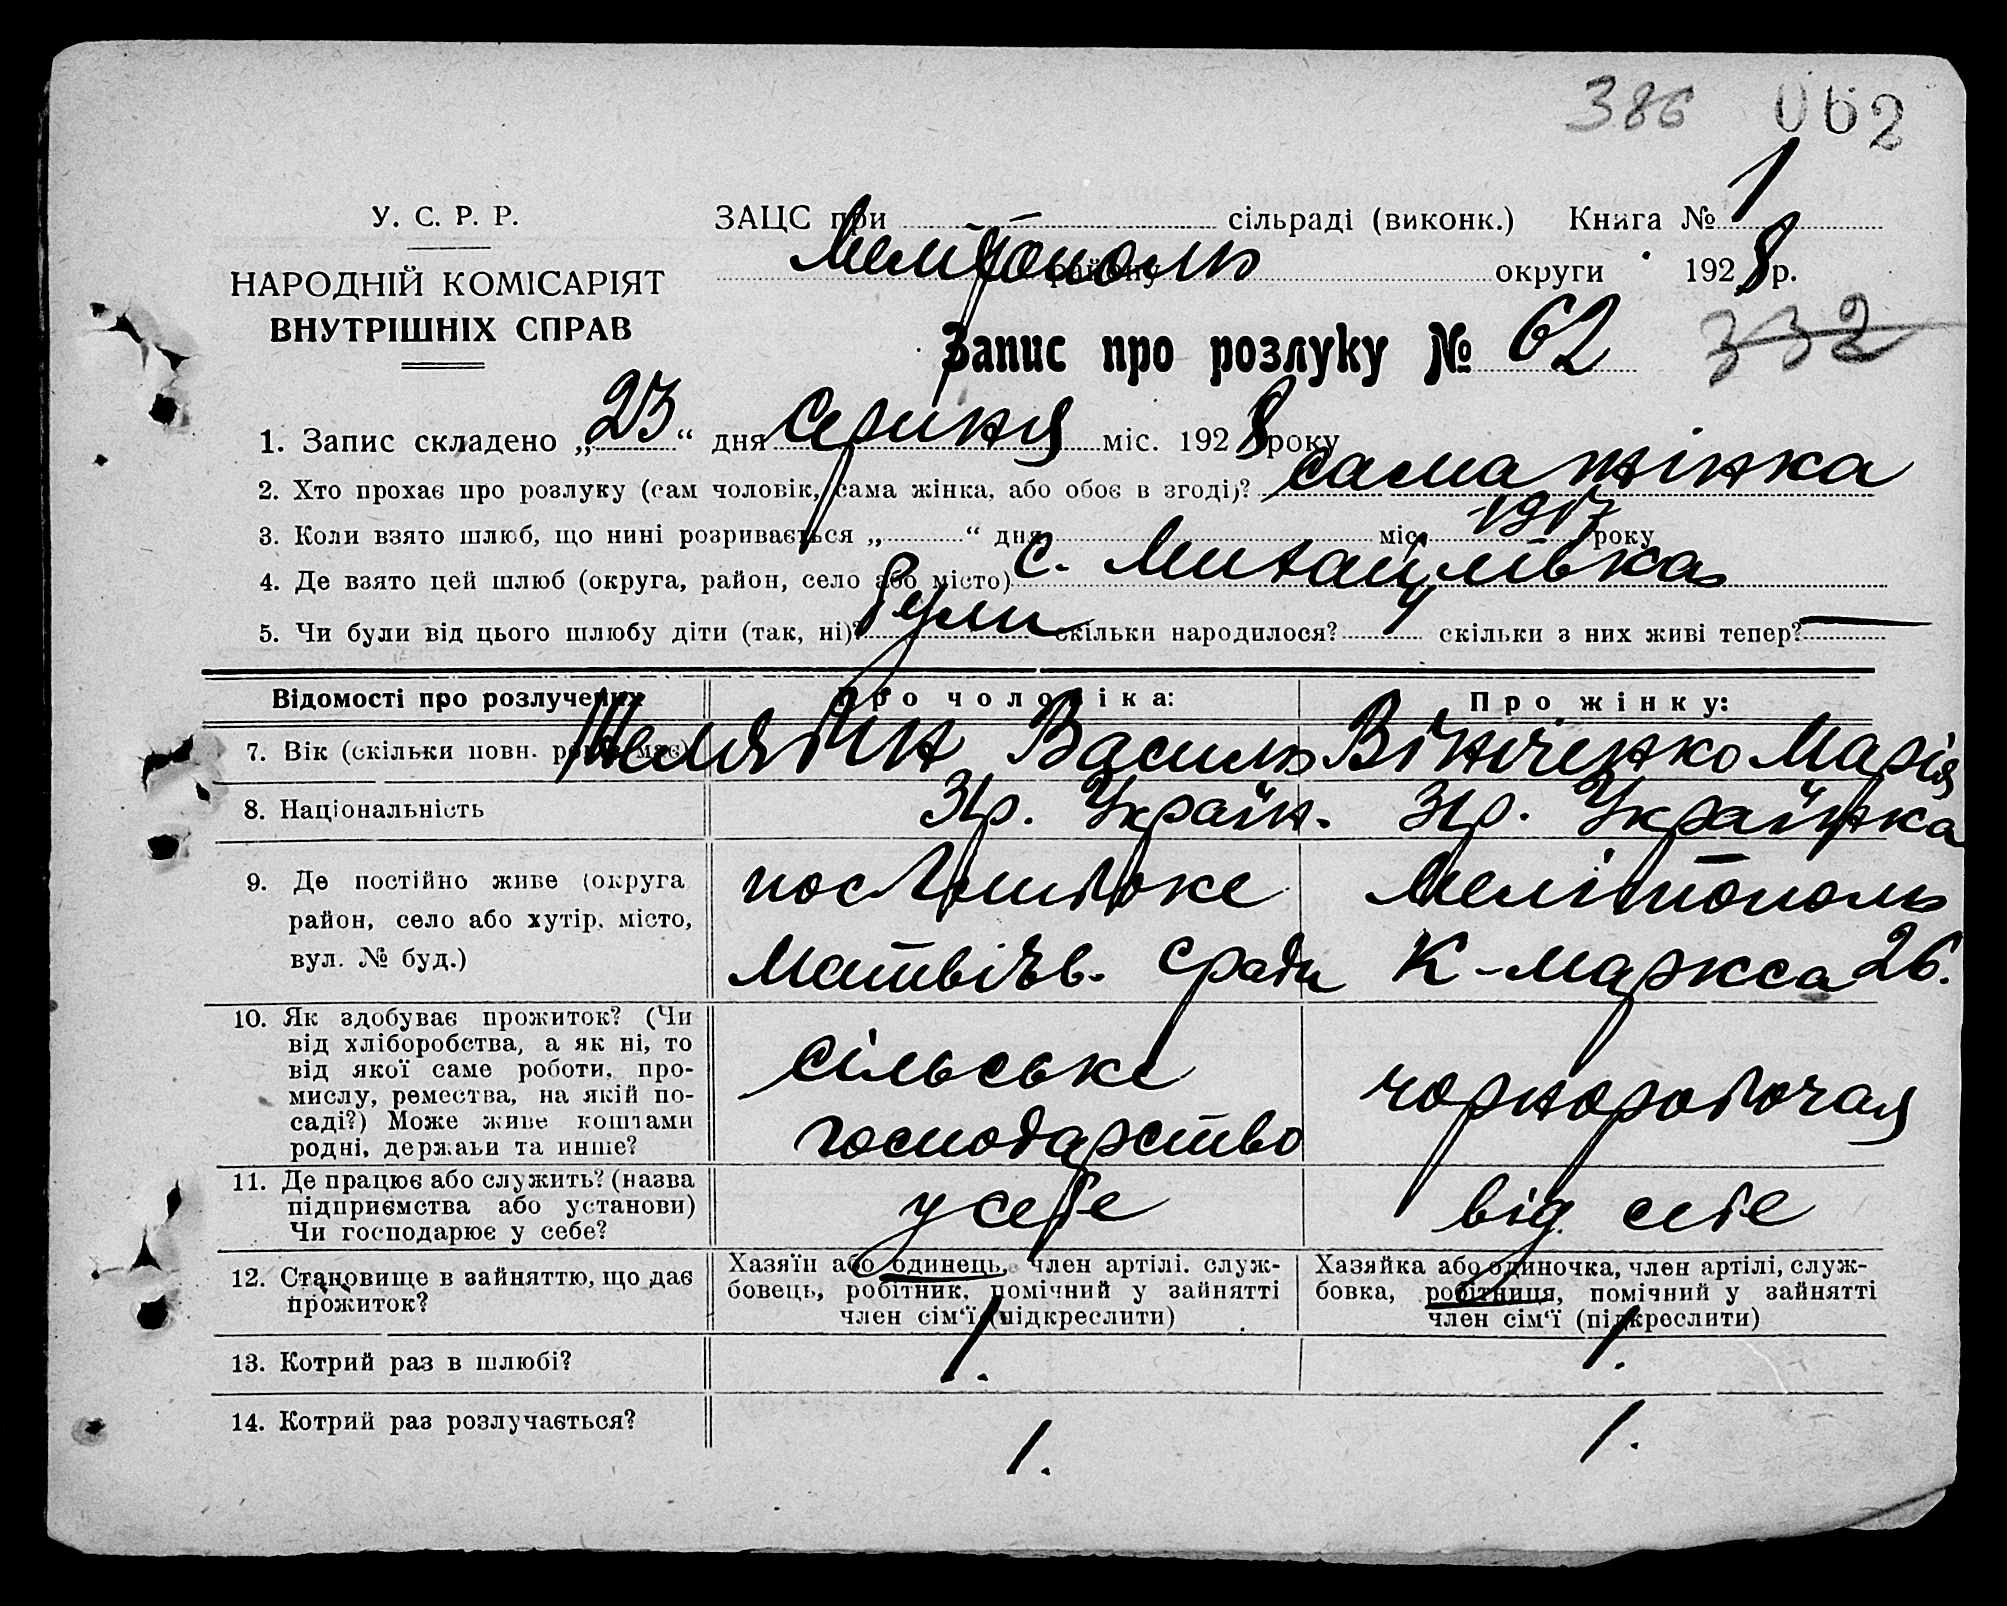 386 062
У. С. Р. Р.
ЗАЦС при сільраді (виконк.) Книга № 1
Мелітополь району округи 1928 р.
НАРОДНІЙ КОМІСАРІЯТ
ВНУТРІШНІХ СПРАВ
Запис про розлуку № 62 332
1. Запис складено „23“ дня серпня міс. 1928 року
2. Хто прохає про розлуку (сам чоловік, сама жінка, або обоє в згоді)? сама жінка
3. Коли взято шлюб, що нині розривається „ “ дня міс. 1917 року
4. Де взято цей шлюб (округа, район, село або місто) с. Михайлівка
5. Чи були від цього шлюбу діти (так, ні)? були скільки народилося? скільки з них живі тепер? —
Відомості про розлучених Про чоловіка: Про жінку:
Василь Вінніченко Марія
7. Вік (скільки повн. років має)
8. Національність 31р. Україн. 31р. Українка
9. Де постійно живе (округа район, село або хутір, місто, вул. № буд.)
Матвіїв. с ради
Мелітополь
К-Маркса 26.
10. Як здобуває прожиток? (Чи
від хліборобства, а як ні, то
від якої саме роботи, про-
мислу, ремества, на якій по-
саді?) Може живе коштами
родні, держави та инше?
сільське
господарство
чорноробочая
11. Де працює або служить? (назва
підприємства або установи)
Чи господарює у себе?
у себе
від себе
12. Становище в зайняттю, що дає
прожиток?
Хазяїн або одинець, член артілі, служ-
бовець, робітник, помічний у зайнятті
член сім‘ї (підкреслити)
Хазяйка або одиночка, член артілі, служ-
бовка, робітниця, помічний у зайнятті
член сім‘ї (підкреслити)
13. Котрий раз в шлюбі? 1. 1.
14. Котрий раз розлучається? 1. 1.